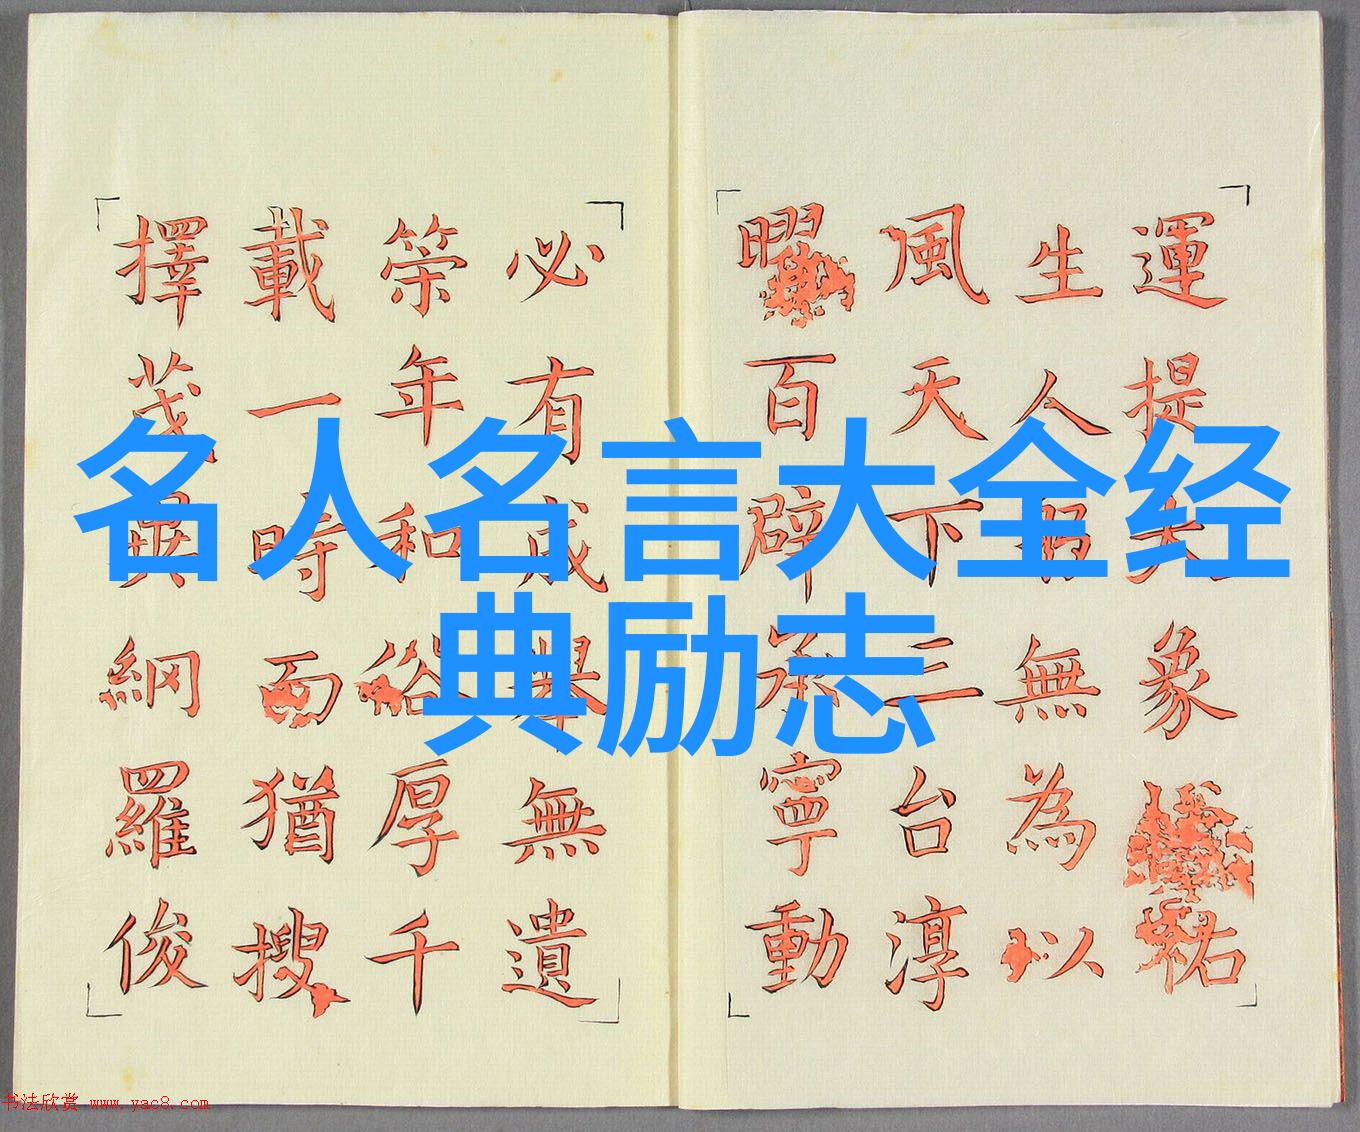 名人名言大全经
典励志
運提象祐
生人無為以
風天下三台淳
曜百辟承寧動
必有成舉無遺
年和俗厚千
載一時而猶搜
擇茂異網羅俊
书法欣赏 www.yac8.com